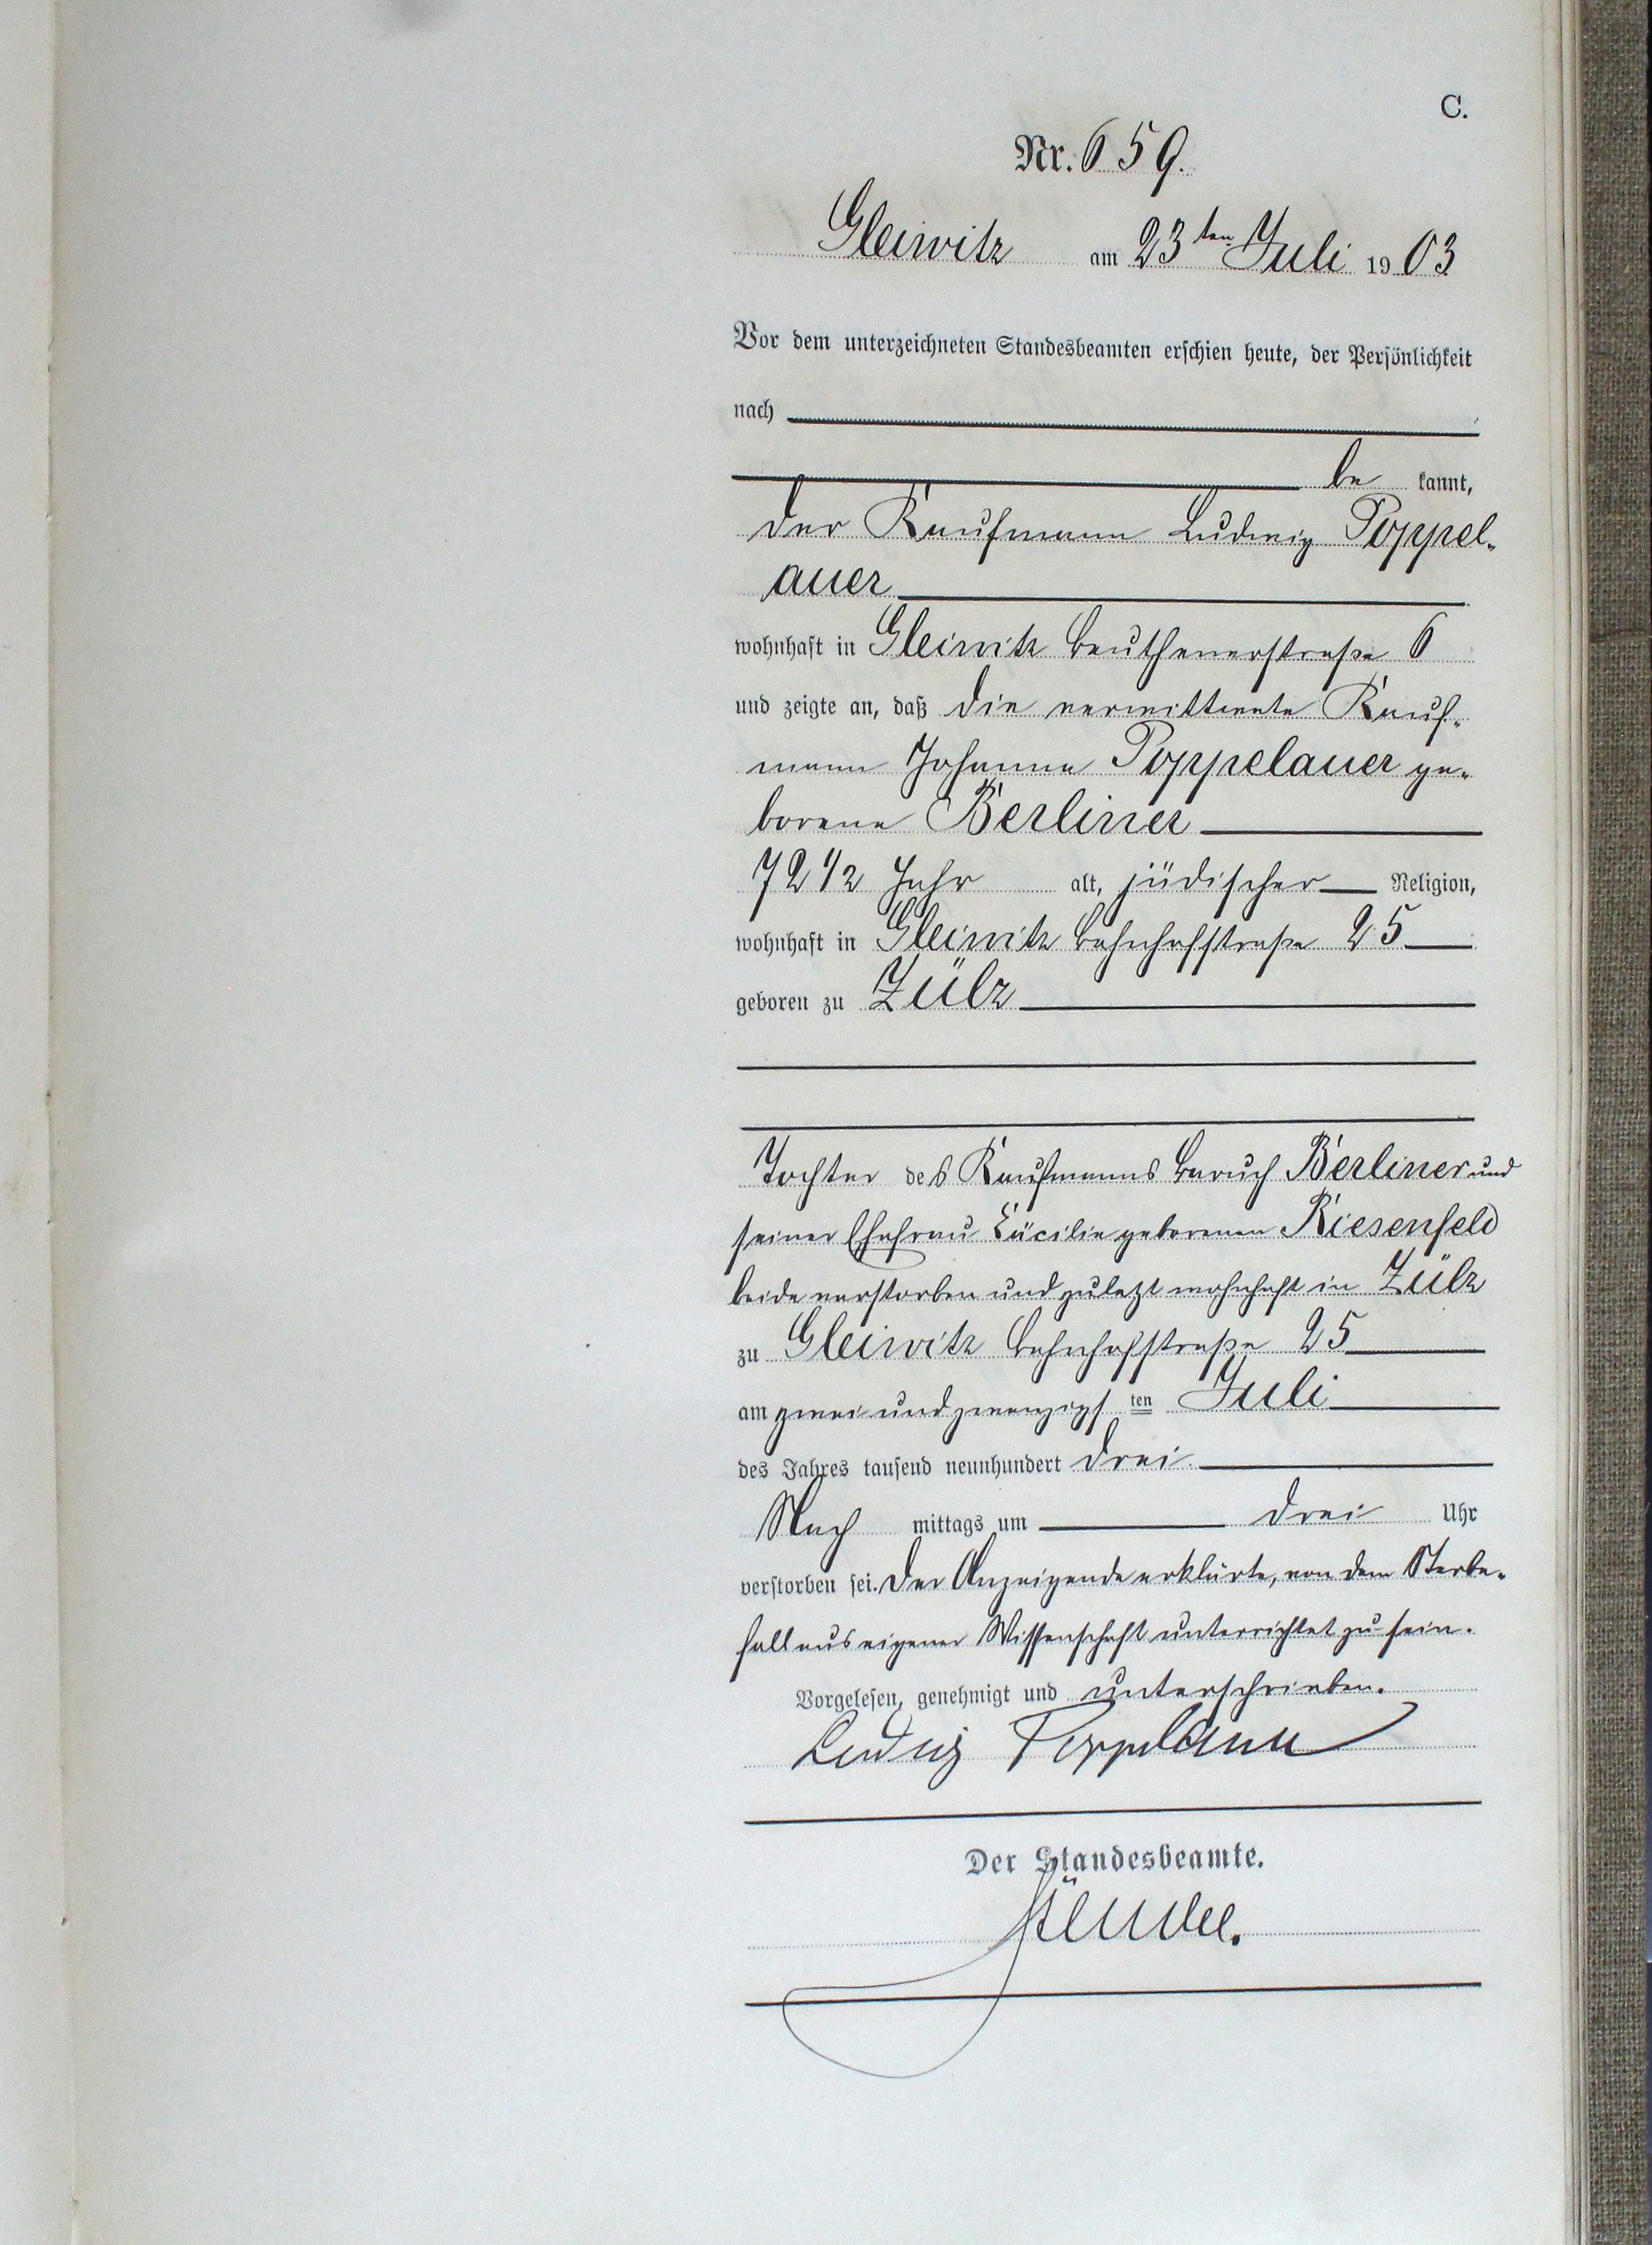 C.
Nr. 659.
Gleiwitz am 23ten Juli 1903
Vor dem unterzeichneten Standesbeamten erschien heute, der Persönlichkeit
nach
be kannt,
der Kaufmann Ludwig Poppel-
auer
wohnhaft in Gleiwitz Beuthenerstraße 6
und zeigte an, daß die verwittwete Kauf-
mann Johanna Poppelauer ge-
borene Berliner
72 1/2 Jahr alt, jüdischer Religion,
wohnhaft in Gleiwitz Bahnhofstraße 25
geboren zu Zülz
Tochter des Kaufmanns Baruch Berliner und
seiner Ehefrau Cäcilie geborenen Riesenfeld
beide verstorben und zuletzt wohnhaft in Zülz
zu Gleiwitz Bahnhofstraße 25
am zwei und zwanzigsten Juli
des Jahres tausend neunhundert drei
Nach mittags um drei Uhr
verstorben sei. Der Anzeigende erklärte, von dem Sterbe-
fall aus eigener Wissenschaft unterrichtet zu sein.
Vorgelesen, genehmigt und unterschrieben.
Ludwig Poppelauer
Der Standesbeamte.